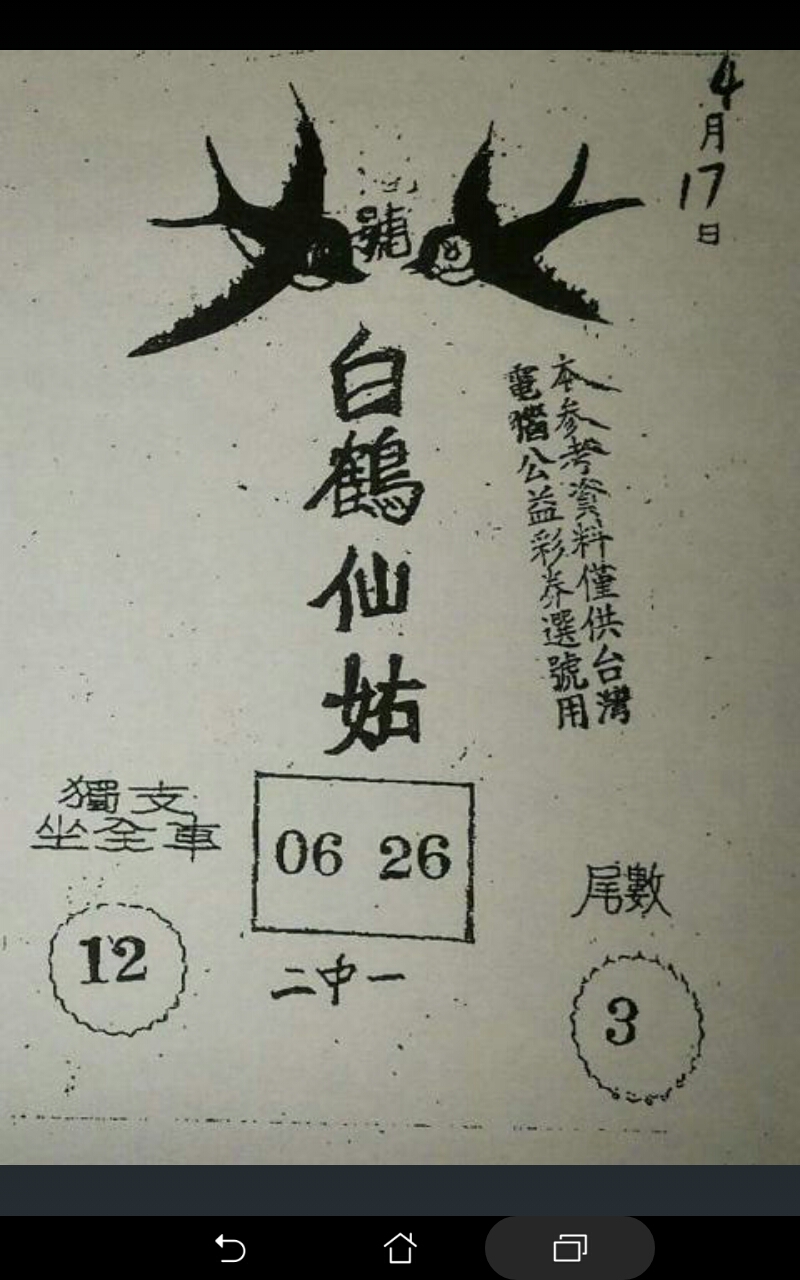 4月17日
號
白鶴仙姑
本参考資料僅供台灣
電腦公益彩券選號用
獨支
坐全車
12
06 26
二中一
尾數
3